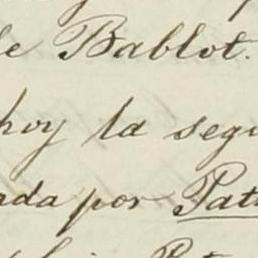 le Bablot.
hoy la segu
ada por Pat